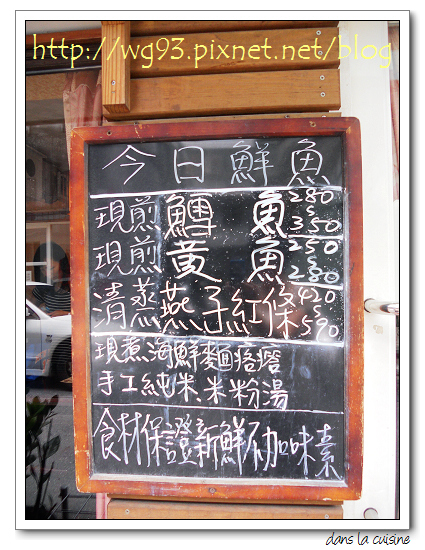 http://wg93.pixnet.net/blog
今日鮮魚
現煎鱈魚280~350
現煎黃魚250~280
清蒸燕子紅條420~590
現煮海鮮麵疙瘩
手工純米米粉湯
食材保證新鮮不加味素
dans la cuisine